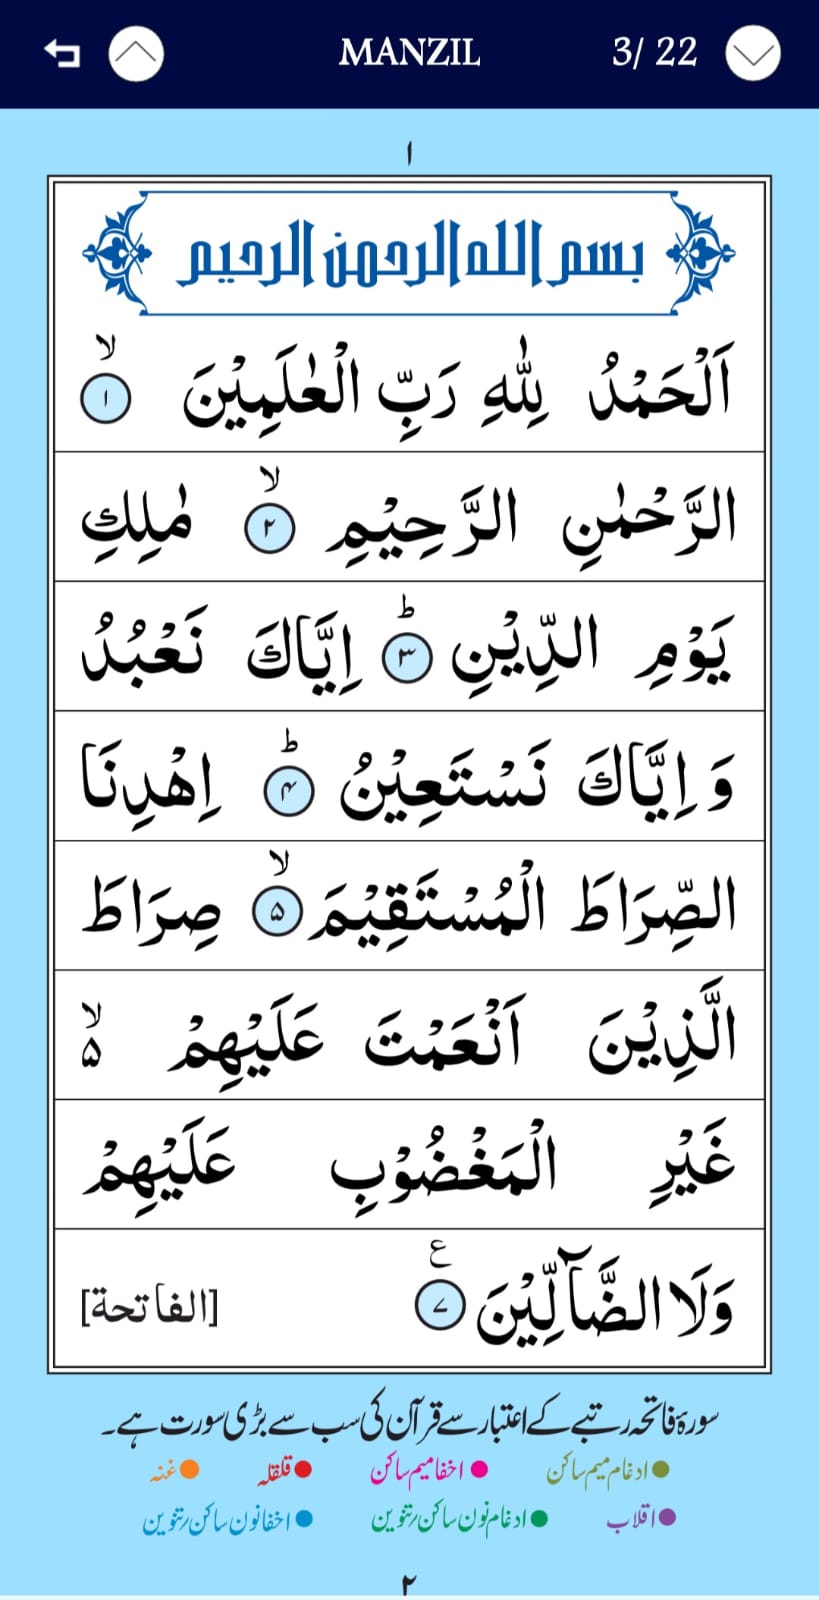 MANZIL 3/ 22
ا
بسم الله الرحمن الرحيم
اَلْحَمْدُ لِلّٰهِ رَبِّ الْعٰلَمِيْنَ ۙ ۱
الرَّحْمٰنِ الرَّحِيْمِ ۙ ۲ مٰلِكِ
يَوْمِ الدِّيْنِ ؕ ۳ اِيَّاكَ نَعْبُدُ
وَ اِيَّاكَ نَسْتَعِيْنُ ؕ ۴ اِهْدِنَا
الصِّرَاطَ الْمُسْتَقِيْمَ ۙ ۵ صِرَاطَ
الَّذِيْنَ اَنْعَمْتَ عَلَيْهِمْ ۙ ۵
غَيْرِ الْمَغْضُوْبِ عَلَيْهِمْ
وَلَا الضَّآلِّيْنَ ع ۷ [الفاتحة]
سورۂ فاتحہ رتبے کے اعتبار سے قرآن کی سب سے بڑی سورت ہے۔
ادغام میم ساکن اخفا میم ساکن قلقلہ غنہ
اقلاب ادغام نون ساکن/تنوین اخفا نون ساکن/تنوین
۲